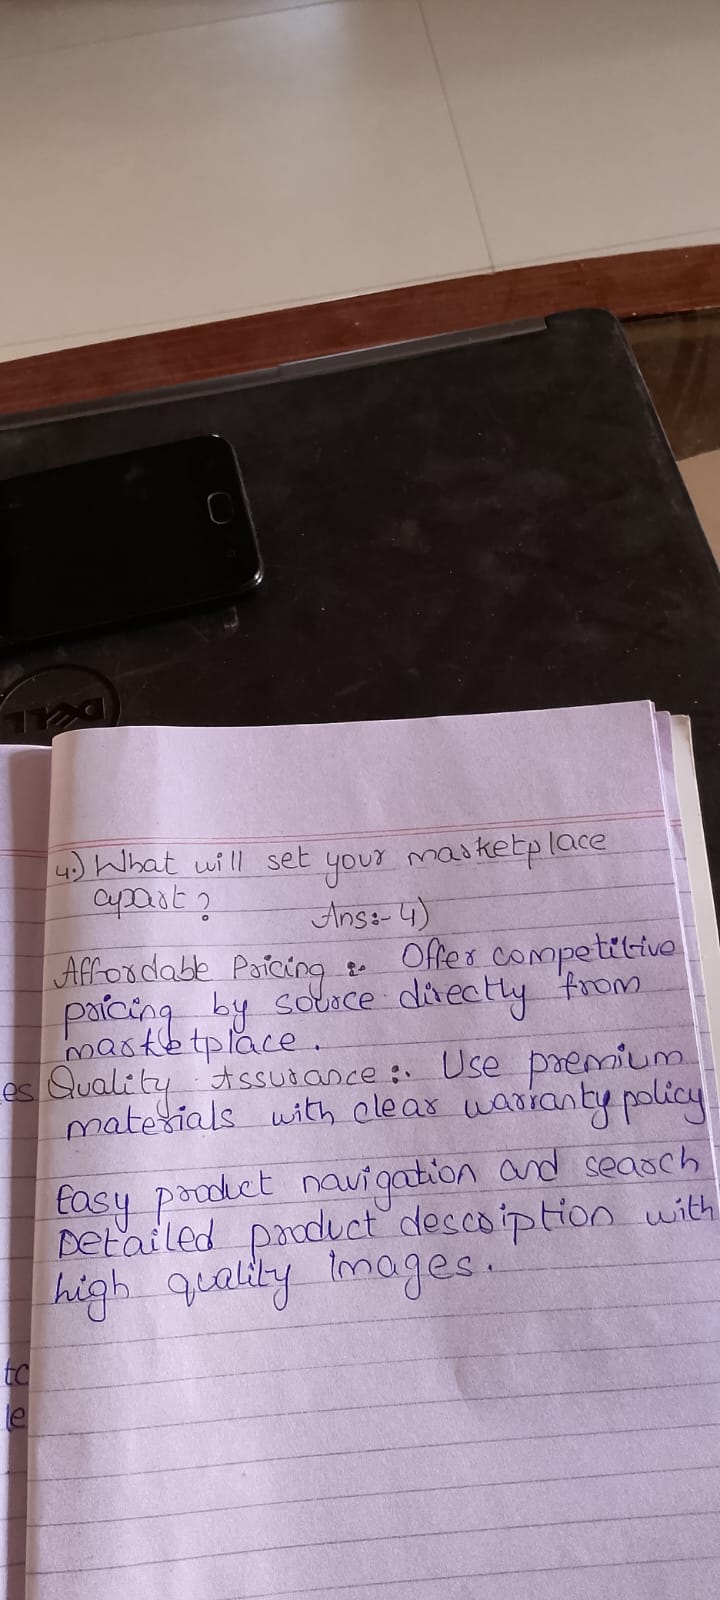 DELL
4.) What will set your marketplace
apart?
Ans:- 4)
Affordable Pricing :- Offer competitive
pricing by source directly from
marketplace.
es
Quality Assurance :- Use premium
materials with clear warranty policy
Easy product navigation and search
Detailed product description with
high quality images.
to
le